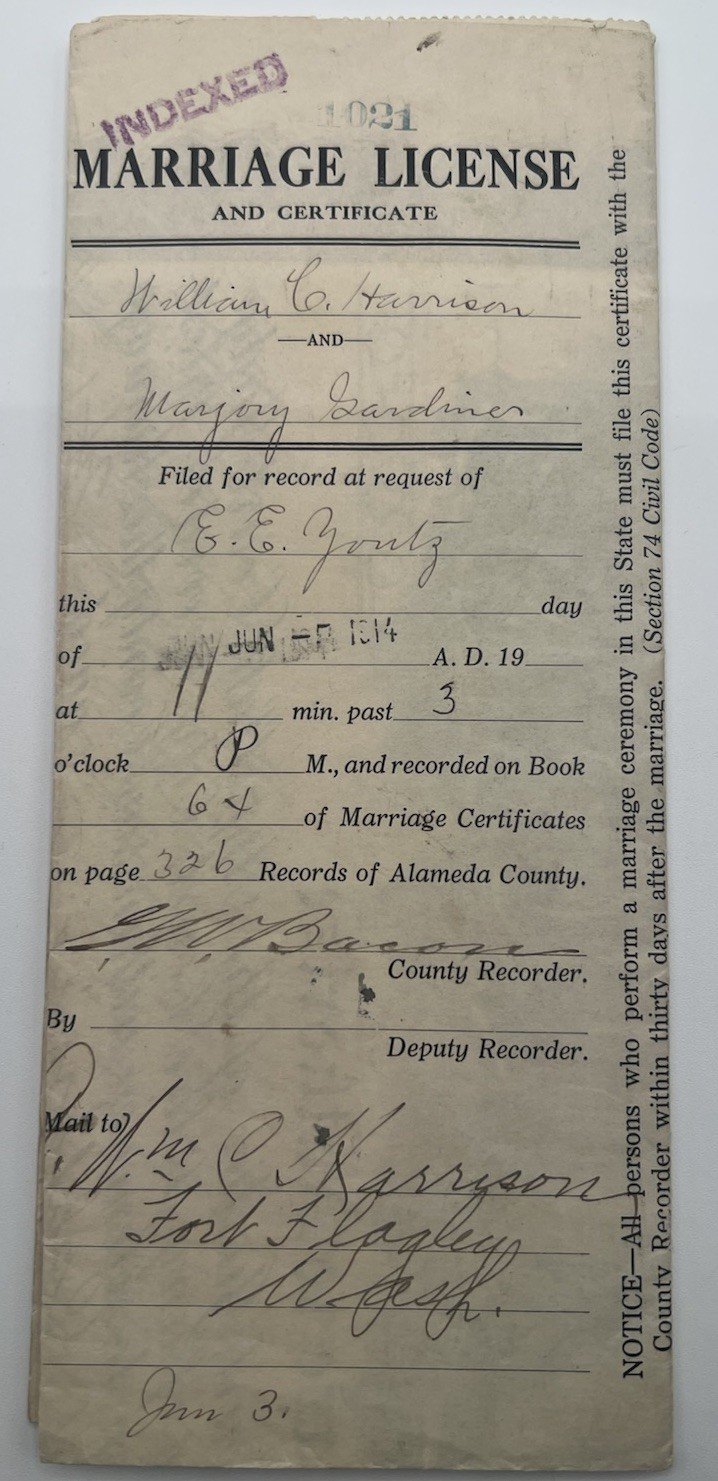 INDEXED
1021
MARRIAGE LICENSE
AND CERTIFICATE
William C. Harrison
—AND—
Marjory Gardiner
Filed for record at request of
E. E. Youtz
this day
of JUN 1914 A. D. 19
at 11 min. past 3
o'clock P M., and recorded on Book
64 of Marriage Certificates
on page 326 Records of Alameda County.
G. W. Bacon
County Recorder.
By
Deputy Recorder.
Mail to
Wm C Harrison
Fort Flagley
Wash.
Jun 3.
NOTICE—All persons who perform a marriage ceremony in this State must file this certificate with the
County Recorder within thirty days after the marriage. (Section 74 Civil Code)